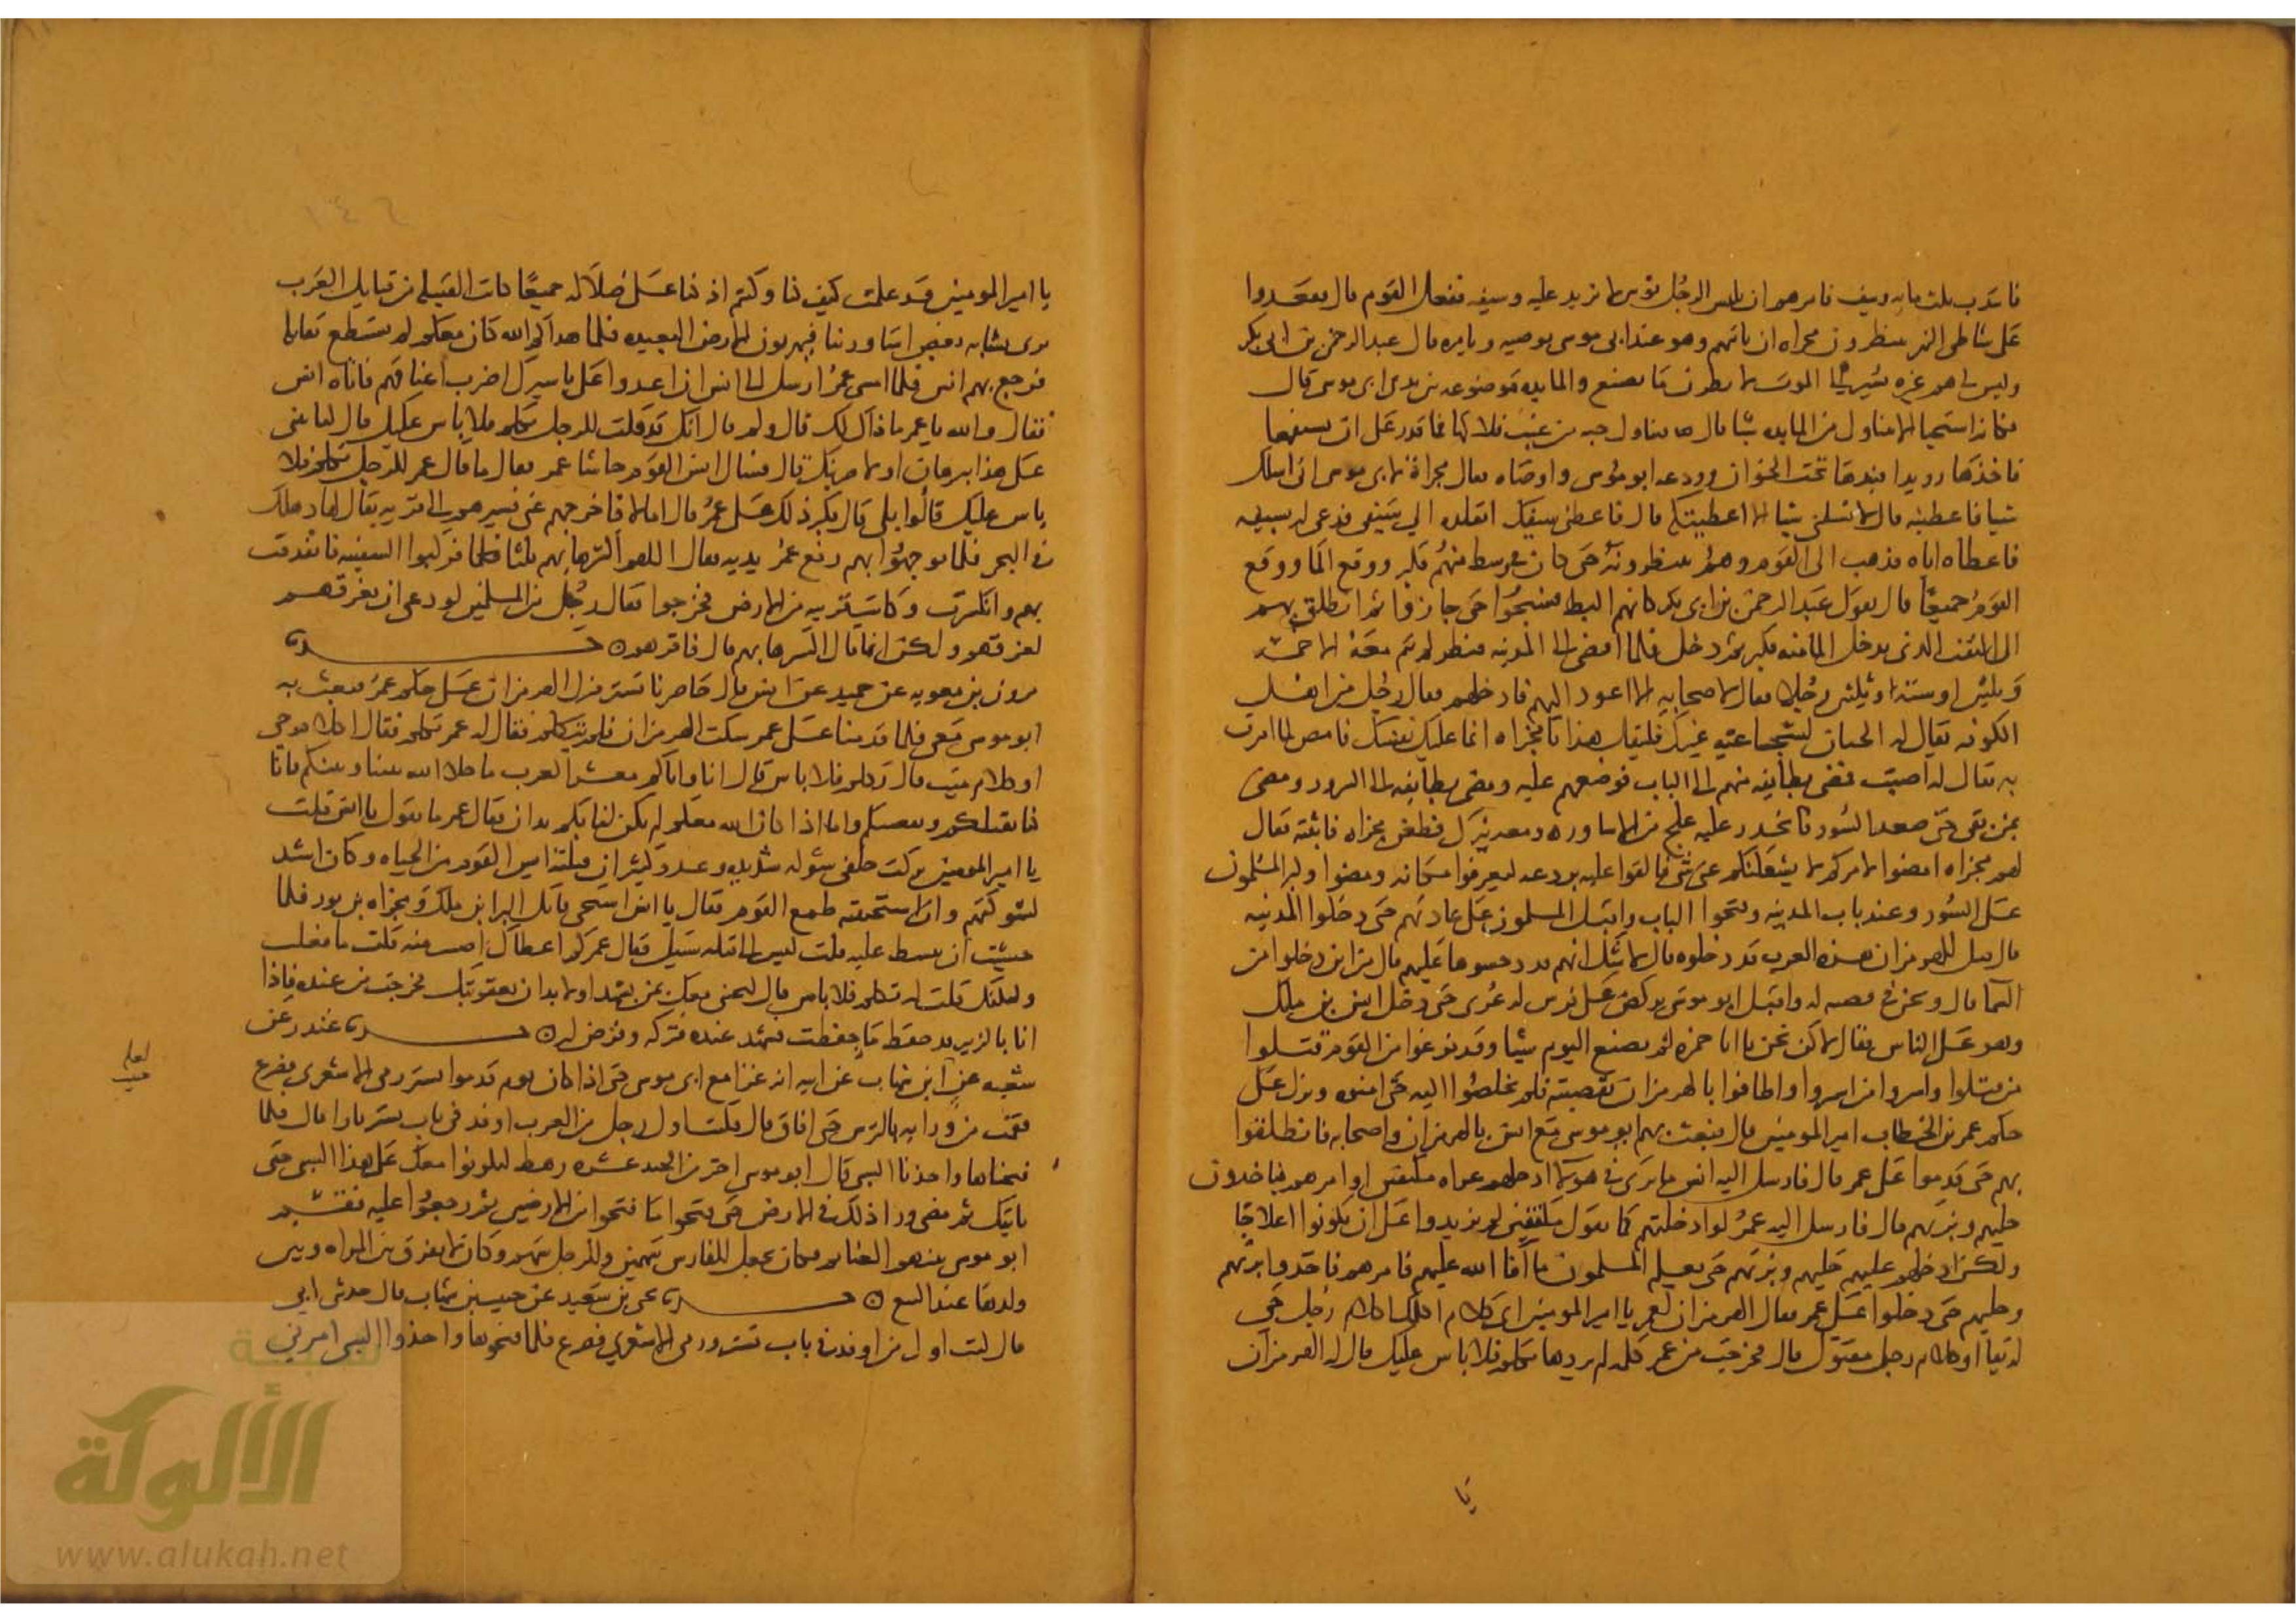 فانتدب ثلث مايه ونيف فامرهم ان يلبس الرجل ثوبين لا نزيد عليه وسيفه ففعل القوم قال فقعدوا
على شاطى النهر ينظرون مجزاه ان ياتيهم وهو عند ابى موسى يوصيه ويامره قال عبد الرحمن بن ابى بكر
وليس لهم غيره يشير الى الموت لانظرن ما يصنع والمايده موضوعه بين يدى ابى موسى قال
فكانه استحيا ان لا يتناول من المايده شيا قال فتناول حبه من عنب فلاكها فما قدر على ان يسيغها
فاخذها رويدا فنبذها تحت الخوان وودعه ابو موسى واوصاه فقال مجزاة لابى موسى انى اسلك
شيا فاعطينه قال لا تسلنى شيا الا اعطيتكه قال فاعطنى سيفك اتقلده الى سيفى فدعى له بسيفه
فاعطاه اياه فذهب الى القوم وهم ينظرونه حتى كان فى وسط منهم فكبر ووقع الما ووقع
القوم جميعا قال يقول عبد الرحمن بن ابى بكر كانهم البط فسبحوا حتى جازوا ثم انطلق بهم
الى النقب الذى يدخل الما منه فكبر ثم دخل فلما افضى الى المدينه فنظر لم يتم معه الا خمسه
وثلثين او سته وثلثين رجلا فقال لاصحابه الا اعود اليهم فادخلهم فقال رجل من اهل
الكوفه يقال له الجبان لشجاعته غيرك فليقل هذا يا مجزاه انما عليك نفسك فامض لما امرت
به فقال له اصبت فمضى بطايفه منهم الى الباب فوضعهم عليه ومضى بطايفه الى السور ومضى
بمن بقى حتى صعد السور فانحدر عليه علج من الاساوره ومعه نيزك فطعن مجزاه فاثبته فقال
لهم مجزاه امضوا لامركم لا يشغلنكم عنى شى فالقوا عليه بردعه ليعرفوا مكانه ومضوا وكبر المسلمون
على السور وعند باب المدينه وفتحوا الباب واقبل المسلمون على عادتهم حتى دخلوا المدينه
قال قيل للهرمزان هذه العرب قد دخلوه قال لا شك انهم قد دحسوها عليهم قال من اين دخلوا من
الما قال وتحرز فى قصبه له واقبل ابو موسى يركض على فرس له عرى حتى دخل انس بن ملك
وهو على الناس فقال لاكن نحن يا ابا حمزه لم نصنع اليوم شيا وقد فرغوا من القوم قتلوا
من قتلوا واسروا من اسروا واطافوا بالهرمزان بقصبته فلم يخلصوا اليه حتى امنوه ونزل على
حكم عمر بن الخطاب امير المومنين قال فبعث بهم ابو موسى مع انس بالهرمزان واصحابه فانطلقوا
بهم حتى قدموا على عمر قال فارسل اليه انس ما ترى فى هولا ادخلهم عراه مكتفين او امرهم فياخذون
حليهم وبزتهم قال فارسل اليه عمر لو ادخلتهم كما تقول مكتفين لم يزيدوا على ان يكونوا اعلاجا
ولكن ادخلهم عليهم حليهم وبزتهم حتى يعلم المسلمون ما افا الله عليهم فامرهم فاخذوا بزتهم
وحليهم حتى دخلوا على عمر فقال الهرمزان لعمر يا امير المومنين اى كلام اكلمك اكلام رجل حى
له بقا او كلام رجل مقتول قال فخرجت من عمر كلمه لم يردها تكلم فلا باس عليك قال له الهرمزان
يا
يا امير المومنين قد علمت كيف كنا وكنتم اذ كنا على ضلاله جميعا كانت القبيله من قبايل العرب
ترى نشابه بعض اساورتنا فيهربون الارض البعيده فلما هداكم الله كان معكم لم نستطع نقاتله
فرجع بهم انس فلما امسى عمر ارسل الى انس ان اغدوا على باسيرك اضرب اعناقهم فاتاه انس
فقال والله يا عمر ما ذاك لك قال ولم قال انك قد قلت للرجل تكلم فلا باس عليك قال لتاتينى
على هذا ببرهان او لاضربنك قال فسال انس القوم جلسا عمر فقال ما قال عمر للرجل تكلم فلا
باس عليك قالوا بلى قال فكبر ذلك على عمر قال اما لا فاخرجهم عنى فسيرهم الى قريه يقال لها دهلك
فى البحر فلما توجهوا بهم رفع عمر يديه فقال اللهم اكسرها بهم ثلثا فلما فركبوا السفينه فاندقت
بهم وانكسرت وكانت قريبه من الارض فخرجوا فقال رجل من المسلمين لو دعى ان يغرقهم
لغرقهم ولكن انما قال اكسرها بهم قال فاقرهم ٥ حدثنا
مرون بن معويه عن حميد عن انس قال حاصرنا تستر فنزل الهرمزان على حكم عمر فبعث به
ابو موسى معى فلما قدمنا على عمر سكت الهرمزان فلم يتكلم فقال له عمر تكلم فقال اكلام حى
او كلام ميت قال تكلم فلا باس قال انا واياكم معشر العرب ما خلا الله بيننا وبينكم فانا
كنا نقتلكم ونقصيكم واما اذا كان الله معكم لم يكن لنا بكم يدان فقال عمر ما تقول يا انس قلت
يا امير المومنين تركت خلفى شوكه شديده وعدد كثير ان قتلته ايس القوم من الحياه وكان اشد
لشوكتهم وان استحييته طمع القوم فقال يا انس استحى قاتل البرا بن ملك ومجزاه بن ثور فلما
خشيت ان يبسط عليه قلت ليس الى قتله سبيل فقال عمر لم اعطاك اصبت منه قلت ما فعلت
ولكنك قلت له تكلم فلا باس قال لتجينى معك بمن يشهد او لابدان بعقوبتك فخرجت من عنده فاذا
انا بالزبير قد حفظ ما حفظت فشهد عنده فتركه وفرض له ٥ حدثنا غندر عن
شعبه عن ابن شهاب عن ابيه انه غزا مع ابى موسى حتى اذا كان يوم قدموا تستر رمى الاشعرى فصرع
فقمت من ورايه بالترس حتى افاق قال فكنت اول رجل من العرب اوقد فى باب تستر نارا قال فلما
فتحناها واخذنا السبى قال ابو موسى اختر من الجند عشره رهط ليكونوا معك على هذا السبى حتى
ناتيك ثم مضى ورا ذلك فى الارض حتى فتحوا ما فتحوا من الارضين ثم رجعوا عليه فقسم
ابو موسى بينهم الغنايم فكان يجعل للفارس سهمين وللرجل سهم وكان لا يفرق بين المراه وبين
ولدها عند البيع ٥ حدثنا يحى بن سعيد عن حبيب بن شهاب قال حدثنى ابى
قال كنت اول من اوقد فى باب تستر ورمى الاشعرى فصرع فلما فتحوها واخذوا السبى امرنى
لعله
حبيب
شبكة
الألوكة
www.alukah.net